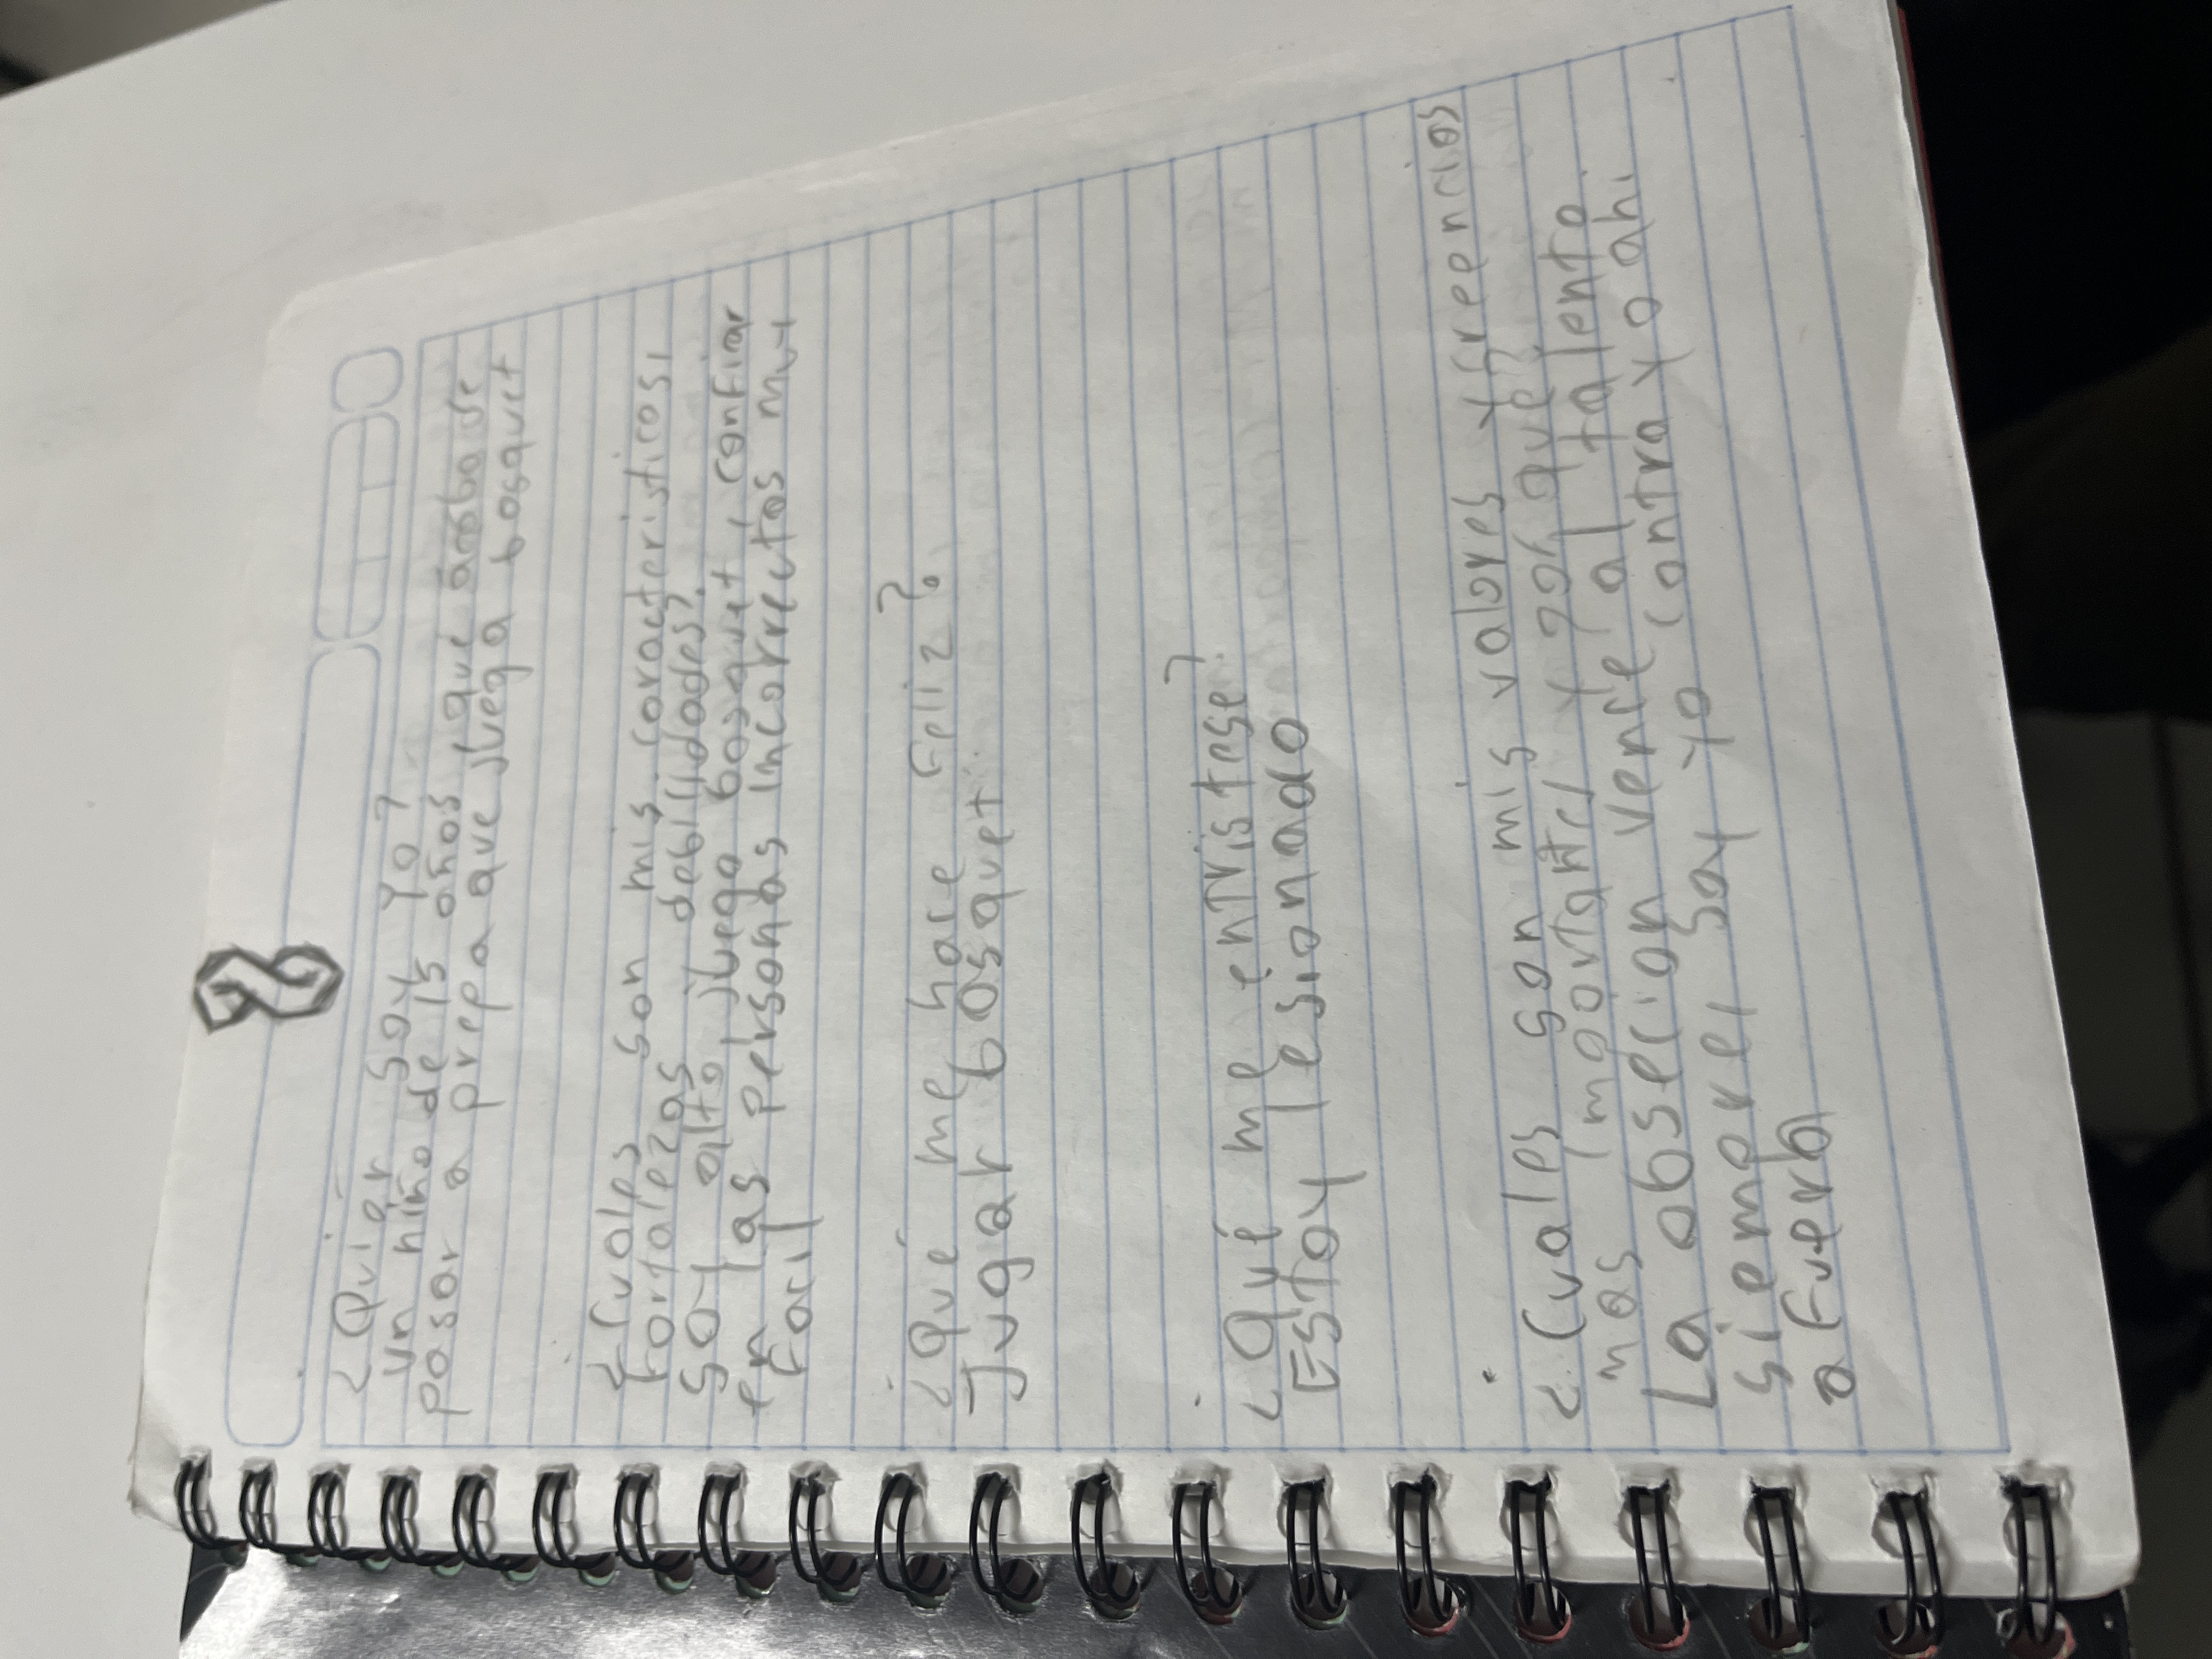 ¿Quién soy yo?
un niño de 15 años, que acaba de
pasar a prepa que juega bosquet
¿Cuales son mis caracteristicas,
Fortalezas debilidades?
Soy alto, juego bosquet, confiar
en las personas incorrectas muy
Facil
¿Qué me hace Feliz?
Jugar bosquet
¿Qué me entristese?
Estoy lesionado
¿Cuales son mis valores y creencias
mas importantes y por que?
La obsecion vence al talento
siempre, soy yo contra yo ahi
afuera